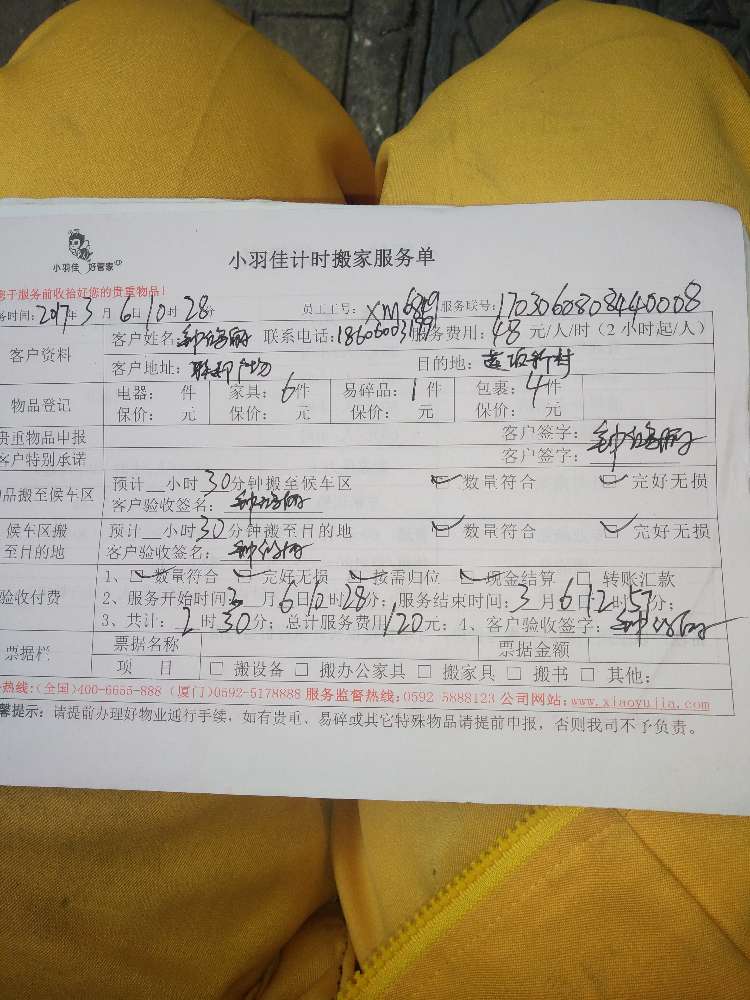 小羽佳 好管家
小羽佳计时搬家服务单
于服务前收拾好您的贵重物品！
务时间：2017年3月6日10时28分 员工工号：XM6849 服务联号：17030608084440008
客户资料 客户姓名： 联系电话： 服务费用：48元/人/时（2小时起/人）
客户地址： 目的地：莲坂新村
物品登记 电器： 件 家具：6件 易碎品：1件 包裹：4件
保价： 元 保价： 元 保价： 元 保价： 元
贵重物品申报 客户签字：
客户特别承诺 客户签字：
品搬至候车区 预计__小时30分钟搬至候车区 数量符合 完好无损
客户验收签名：
候车区搬至目的地 预计__小时30分钟搬至目的地 数量符合 完好无损
客户验收签名：
验收付费 1、数量符合 完好无损 按需归位 现金结算 转账汇款
2、服务开始时间：3月6日10时28分；服务结束时间：3月6日12时57分；
3、共计：2时30分；总计服务费用120元；4、客户验收签字：
票据栏 票据名称 票据金额
项 目 □ 搬设备 □ 搬办公家具 □ 搬家具 □ 搬书 □ 其他：
热线：（全国）400-6655-888（厦门）0592-5178888 服务监督热线：0592 5888123 公司网站：www.xiaoyujia.com
馨提示：请提前办理好物业通行手续，如有贵重、易碎或其它特殊物品请提前申报，否则我司不予负责。